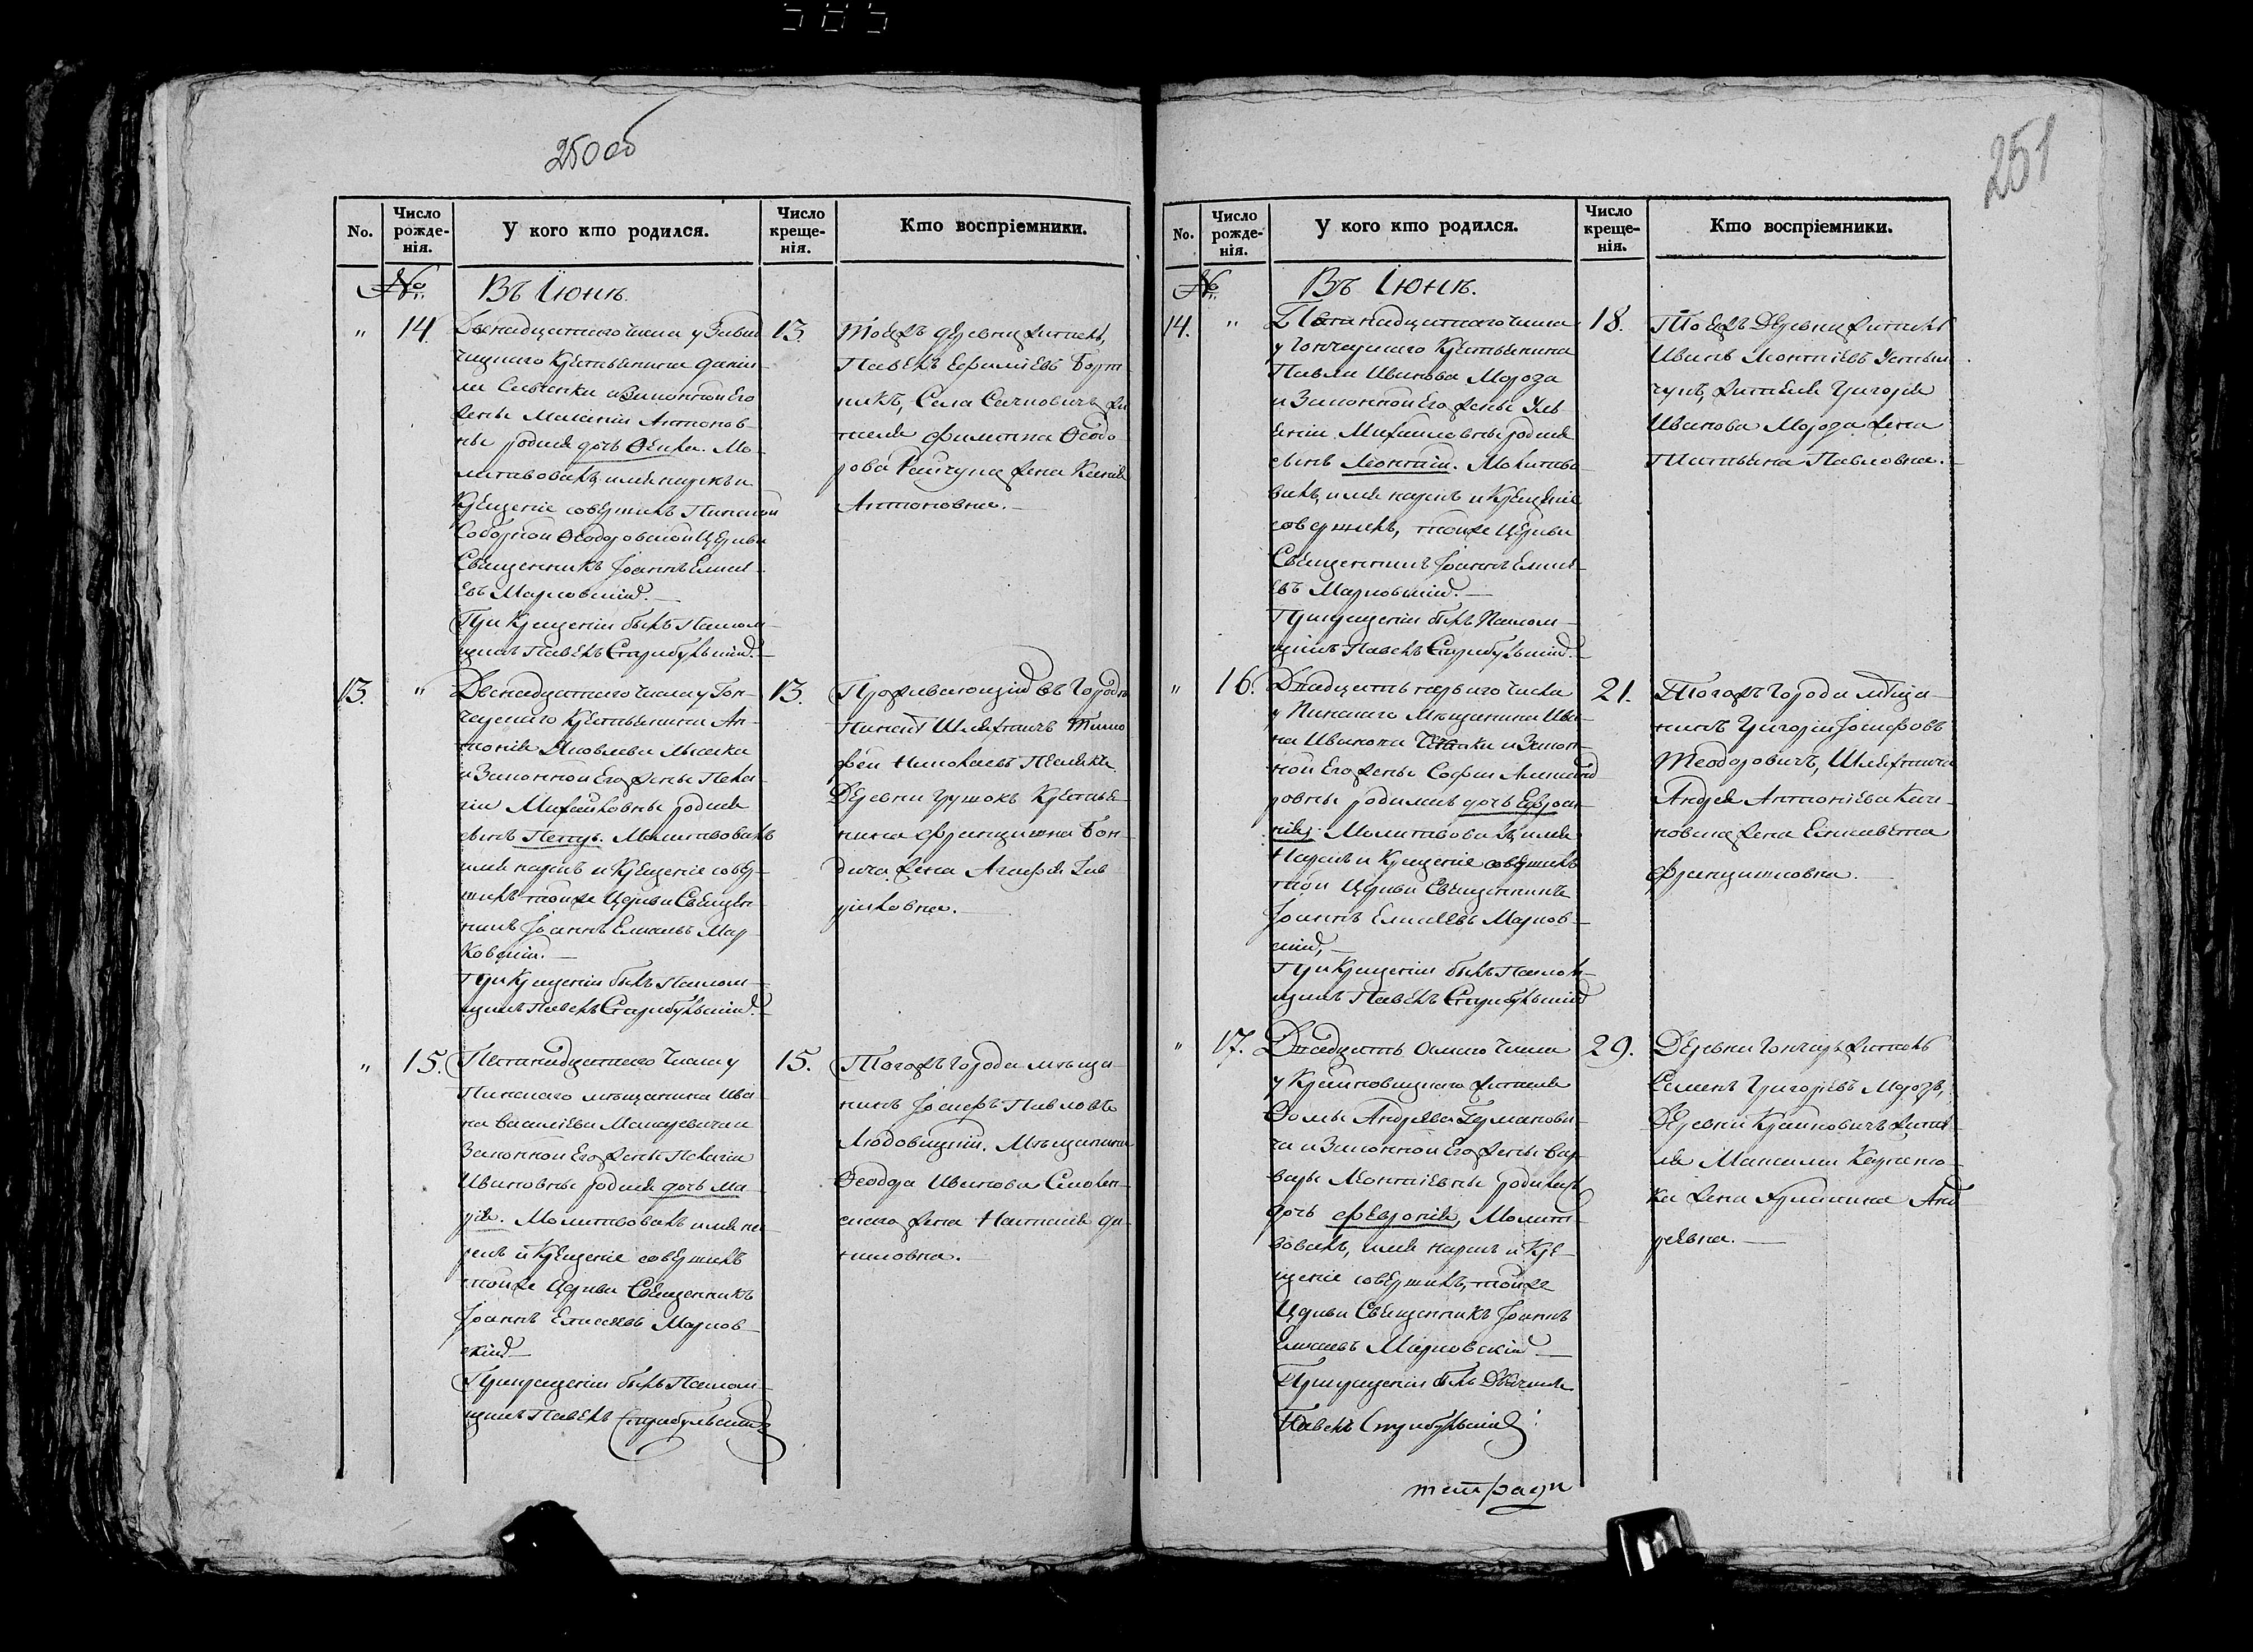 585
250 об
No.
Число рожде-нія.
У кого кто родился.
Число креще-нія.
Кто воспріемники.
№
Въ Іюнѣ.
" 14.
Двенадцатаго числа у
чицкаго Крестьянина Дани-
ла и законной Его
жены Антонов-
ны родися дочь Ѳекла. Мо-
литвовалъ, имя нарекъ и
Крещеніе совершилъ Пинской
Соборной Ѳеодоровской Церкви
Священникъ Іоаннъ Елисе-
евъ Марковскій.
При Крещеніи былъ Поном-
щикъ Павелъ
13.
Тоежъ деревни житель,
Павелъ Бортни-
никъ, Села жи
теля Филипа Ѳеодо-
рова жена Ксенія
Антоновна.
13. "
Двенадцатаго числа у Гон-
чарскаго Крестьянина Ан-
тонія Яковлева
и Законной Его жены Пела-
гіи Михайловны родися
сынъ Петръ. Молитвовалъ
имя нарекъ и Крещеніе совер-
шилъ тойже Церкви Священ-
никъ Іоаннъ Елисеевъ Мар-
ковскій.
При Крещеніи былъ Поном-
щикъ Павелъ
13.
Проживающій въ Городѣ
Пинскѣ Шляхтичъ Тимо
фей Николаевъ
Деревни Крестья-
нина Францишка Бон-
дича жена Агафія Гав-
риловна.
" 15.
Петанадцатаго Числа у
Пинскаго мѣщанина Ива-
на Василіева Макаревича и
Законной Его жены Пелагіи
Ивановны родися дочь Ма-
рія. Молитвовалъ имя на-
рекъ и Крещеніе совершилъ
тойже Церкви Священникъ
Іоаннъ Елисеевъ Марков-
скій
При крещеніи былъ Поном-
щикъ Павелъ
15.
Тогожъ Города мѣща-
нинъ Іосифъ Павловъ
Людовицкій. Мѣщанина
Ѳеодора Иванова
жена Наталія Да-
ниловна.
251
No.
Число рожде-нія.
У кого кто родился.
Число креще-нія.
Кто воспріемники.
№
Въ Іюнѣ.
14. "
Петанадцатаго числа
у Гончарскаго Крестьянина
Павла Иванова Мороза
и Законной Его жены Уль
яніи Михайловны родися
сынъ Леонтій. Молитво-
валъ, имя нарекъ и Крещеніе
совершилъ, тойже Церкви
Священникъ Іоаннъ Елисе-
евъ Марковскій.
При крещеніи былъ Поном-
щикъ Павелъ
18.
Тоежъ Деревни житель
Иванъ Леонтіевъ
жителя Григорія
Иванова Мороза жена
Татьяна Павловна.
" 16.
Двадцать перваго числа
у Пинскаго Мѣщанина Ива-
на Иванова и Закон-
ной Его жены Софіи Александ
ровны родилась дочь Ефроси-
нія. Молитвовалъ, имя
Нарекъ и Крещеніе совершилъ
той Церкви Священникъ
Іоаннъ Елисеевъ Марков-
скій,
При Крещеніи былъ Поном-
щикъ Павелъ
21.
Тогожъ Города мѣща-
нинъ Григорій Іосифовъ
Теодоровичъ, Шляхтича
Андрея Антоніева
жена Елисавета
Францишковна.
" 17.
Двадцать осмаго Числа
у жителя
Ѳомы Андреева Германови-
ча и Законной Его жены Вар-
вары Леонтіевны родилась
дочь Февронія, Молит-
вовалъ, имя нарекъ и Кре-
щеніе совершилъ, тойже
Церкви Священникъ Іоаннъ
Елисеевъ Марковскій
При крещеніи былъ Дьячекъ
Павелъ
29.
Деревни Гончаръ житель
Семенъ Григорьевъ Морозъ,
Деревни жите-
ля Максима
жена Анд-
реевна.
тетради